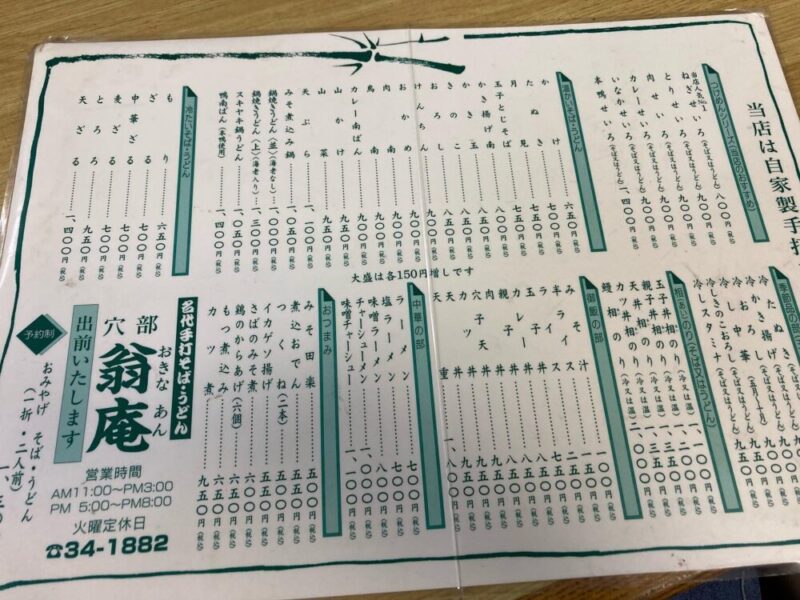 当店は自家製手打
つけめんシリーズ(当店のおすすめ)
当店人気No.1
ねぎせいろ(そば又はうどん)八〇〇円(税込)
とりせいろ(そば又はうどん)九〇〇円(税込)
肉せいろ(そば又はうどん)九〇〇円(税込)
カレーせいろ(そば又はうどん)九〇〇円(税込)
いなかせいろ(そば又はうどん)九〇〇円(税込)
本鴨せいろ(そば又はうどん)一、四〇〇円(税込)
温かいそば・うどん
かけ 六五〇円(税込)
たぬき 七〇〇円(税込)
月見 七五〇円(税込)
玉子とじそば 七五〇円(税込)
かき揚げ南 八五〇円(税込)
かき玉 八五〇円(税込)
きのこ 八五〇円(税込)
けんちん 九〇〇円(税込)
おかめ 九〇〇円(税込)
肉南 九〇〇円(税込)
鳥南 九〇〇円(税込)
カレー南ばん 九〇〇円(税込)
山かけ 九五〇円(税込)
山菜 九五〇円(税込)
天ぷら 一、一〇〇円(税込)
みそ煮込み鍋 一、〇五〇円(税込)
鍋焼きうどん(並)(海老なし)一、〇〇〇円(税込)
鍋焼きうどん(上)(海老入り)一、三〇〇円(税込)
スキヤキ鍋うどん 一、〇五〇円(税込)
鴨南ばん(本鴨使用)一、四〇〇円(税込)
冷たいそば・うどん
もり 六五〇円(税込)
ざる 七〇〇円(税込)
中華ざる 七五〇円(税込)
麦ざる
とろろ 九五〇円(税込)
天ざる 一、四〇〇円(税込)
大盛は各150円増しです
季節品の部
冷したぬき(そば又はうどん)
冷かき揚げ(そば又はうどん)
冷し中華(五月~十月)
冷しきのこおろし(そば又はうどん)九五〇円(税込)
冷しスタミナ(そば又はうどん)九五〇円(税込)
相のり(そば又はうどん)
玉子丼相のり(冷又は温)
親子丼相のり(冷又は温)
天丼相のり(冷又は温)
カツ丼相のり(冷又は温)
鰻相のり(冷又は温)
御飯の部
みそ汁 一五〇円(税込)
ライス 二五〇円(税込)
半ライス
玉子丼
カレー丼
親子丼
肉丼
穴子天丼
カツ丼
天丼
天重
中華の部
ラーメン 七〇〇円(税込)
塩ラーメン 七〇〇円(税込)
味噌ラーメン 八〇〇円(税込)
チャーシューメン
味噌チャーシュー
おつまみ
みそ田楽 五〇〇円(税込)
煮込おでん 五五〇円(税込)
つくね(二本)五五〇円(税込)
イカゲソ揚げ 五五〇円(税込)
さばのみそ煮 五五〇円(税込)
鶏のからあげ(六個)五五〇円(税込)
もつ煮込み 五五〇円(税込)
カツ煮 九五〇円(税込)
名代手打そば・うどん
穴部 翁庵
おきな あん
出前いたします
営業時間
AM11:00~PM3:00
PM 5:00~PM8:00
火曜定休日
☎34-1882
予約制
おみやげ そば・うどん
(一折・二人前)